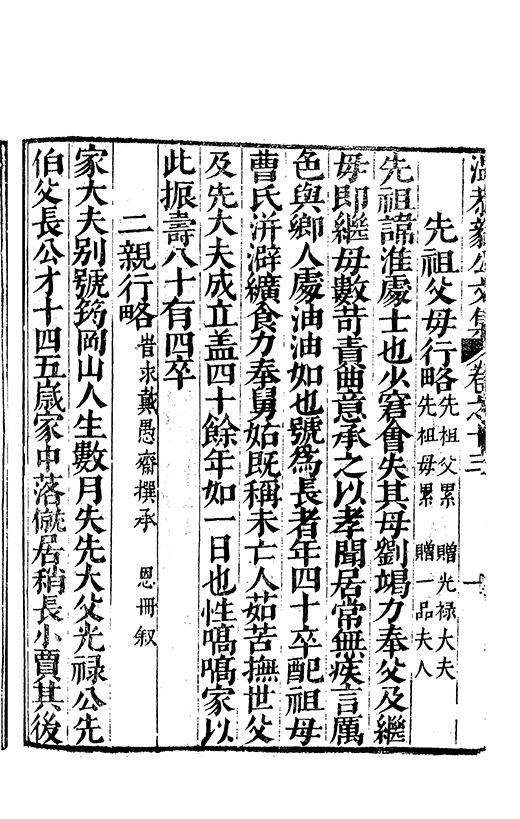 溫恭毅公文集 卷之十三 一
先祖父母行略先祖父累 贈光祿大夫先祖母累 贈一品夫人
先祖諱淮處士也少窘會失其母劉竭力奉父及繼
母即繼母數苛責曲意承之以孝聞居常無疾言厲
色與鄉人處油油如也號爲長者年四十卒配祖母
曹氏洴澼纊食力奉舅姑既稱未亡人茹苦撫世父
及先大夫成立盖四十餘年如一日也性嗃嗃家以
此振壽八十有四卒
二親行略昔求戴愚齋撰承 恩冊叙
家大夫别號筠岡山人生數月失先大父光祿公先
伯父長公才十四五歲家中落僦居稍長小賈其後